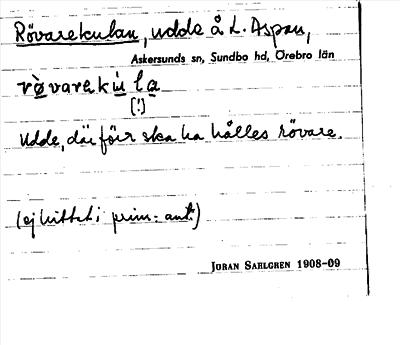 Rövarekulan, udde å L. Aspön,
Askersunds sn, Sundbo hd, Örebro län
rø̀varekùla
(!)
Udde, där förr ska ha hållts rövare.
(ej hittat i prim:ant.)
JÖRAN SAHLGREN 1908-09